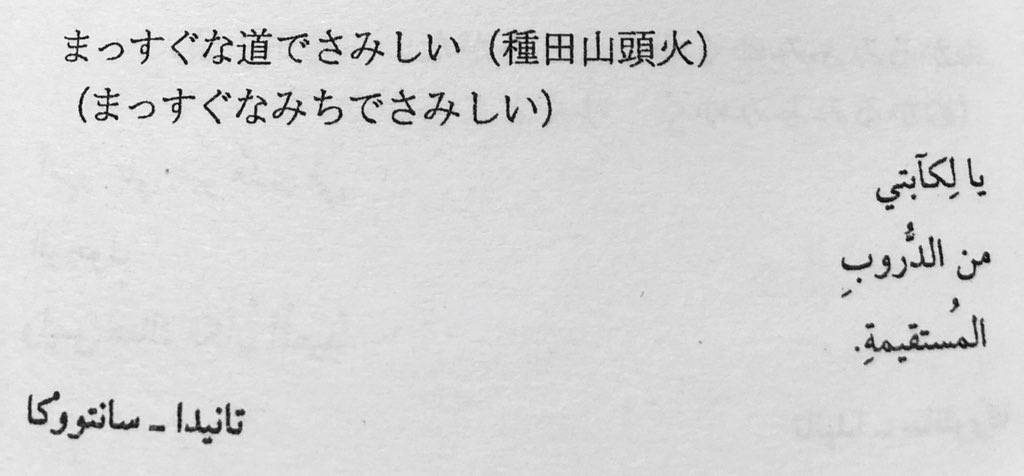 まっすぐな道でさみしい（種田山頭火）
（まっすぐなみちでさみしい）
يا لِكآبتي
من الدُّروبِ
المُستقيمةِ.
تانيدا ـ سانتووكا